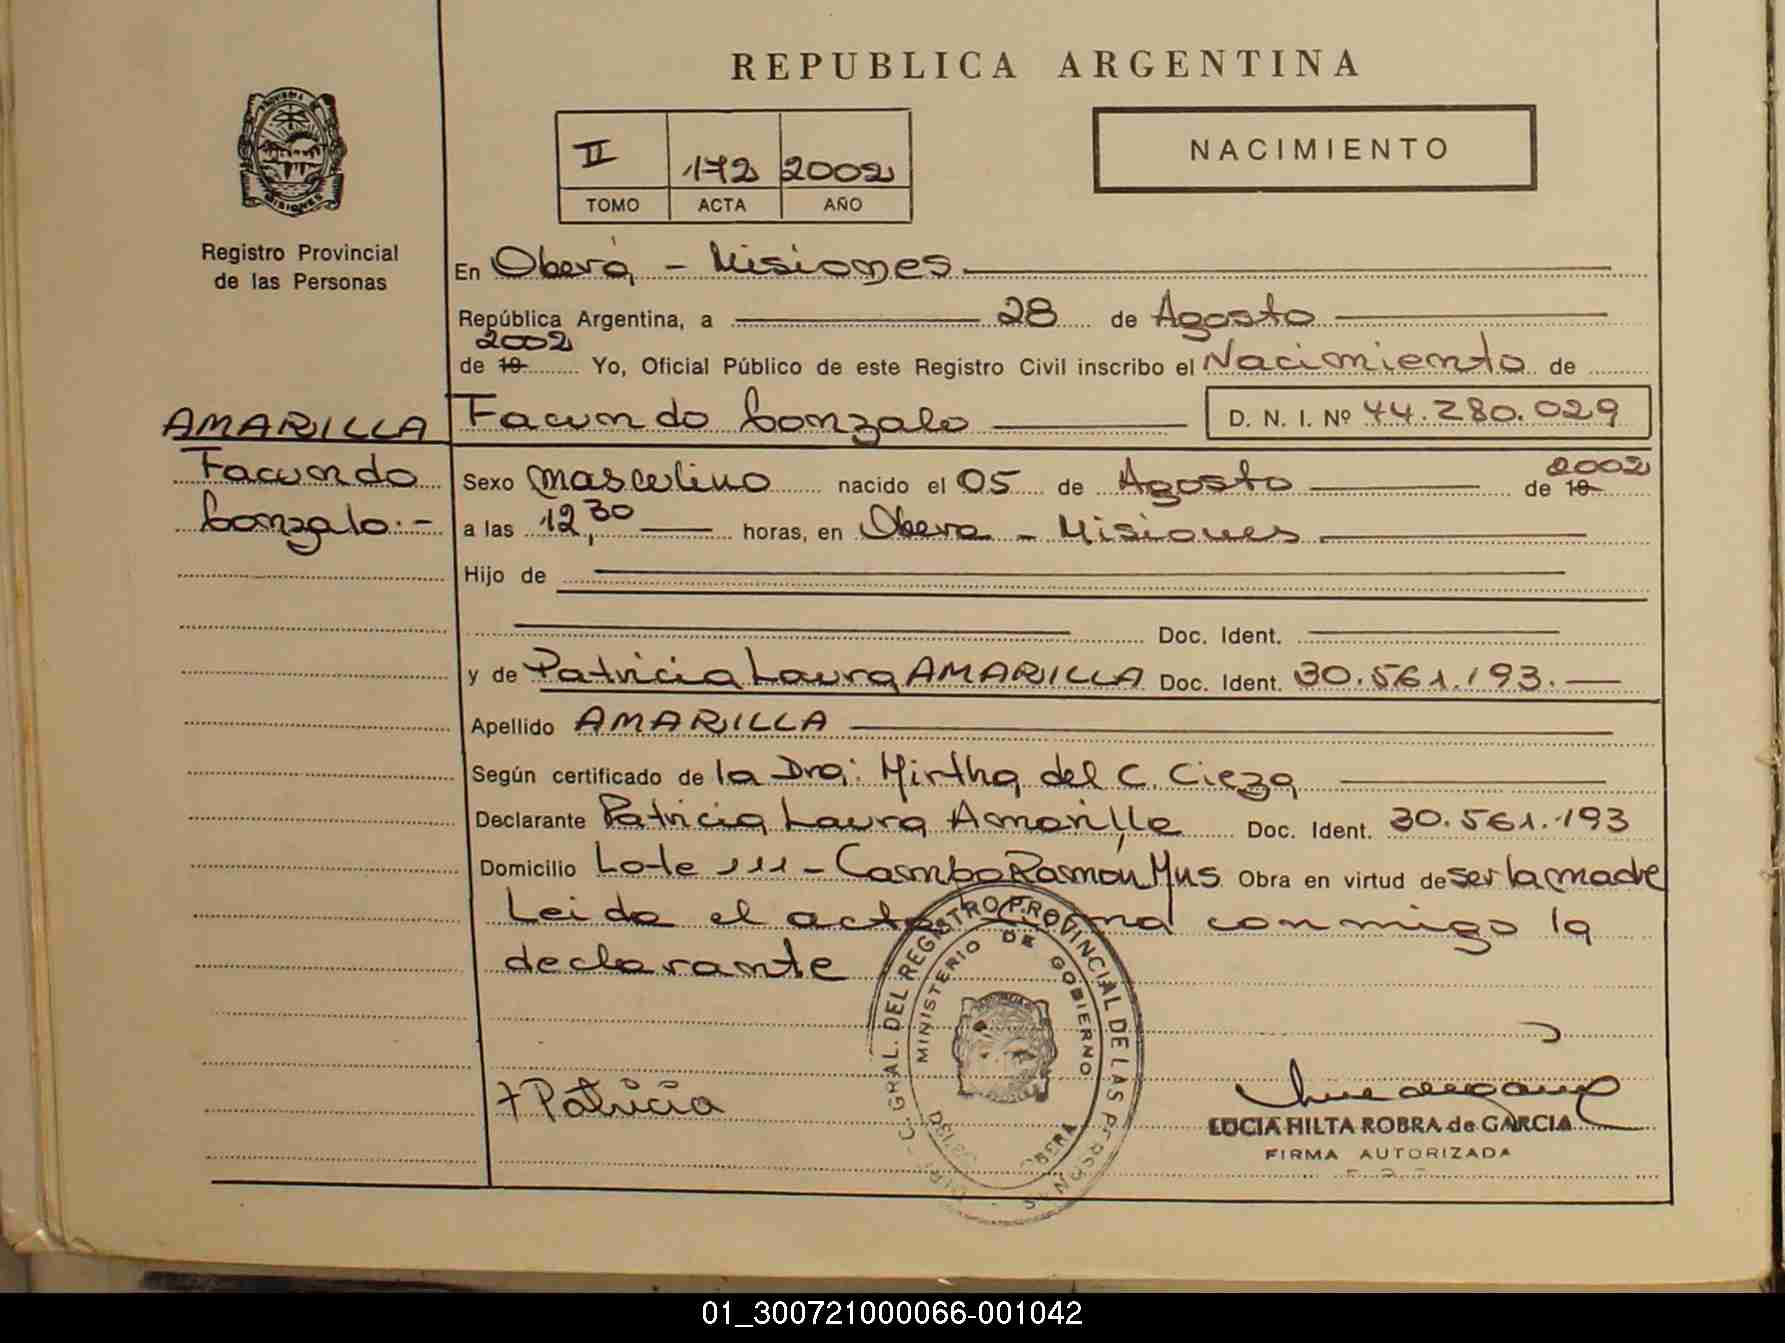 REPUBLICA ARGENTINA
NACIMIENTO
II 172 2002
TOMO ACTA AÑO
Registro Provincial
de las Personas
En Oberá - Misiones
República Argentina, a 28 de Agosto
2002
de 19 Yo, Oficial Público de este Registro Civil inscribo el Nacimiento de
AMARILLA
Facundo
Gonzalo.-
Facundo Gonzalo D. N. I. Nº 44.280.029
Sexo masculino nacido el 05 de Agosto de 19 2002
a las 12,30 horas, en Obera - Misiones
Hijo de
Doc. Ident.
y de Patricia Laura AMARILLA Doc. Ident. 30.561.193.
Apellido AMARILLA
Según certificado de la Dra: Mirtha del C. Cieza
Declarante Patricia Laura Amarilla Doc. Ident. 30.561.193
Domicilio Lote 111 - Campo Ramón Mns. Obra en virtud de ser la madre
Leida el acta firma conmigo la
declarante
GRAL. DEL REGISTRO PROVINCIAL DE LAS PERSONAS
MINISTERIO DE GOBIERNO
OBERA
+ Patricia
LUCIA HILTA ROBRA de GARCIA
FIRMA AUTORIZADA
01_300721000066-001042